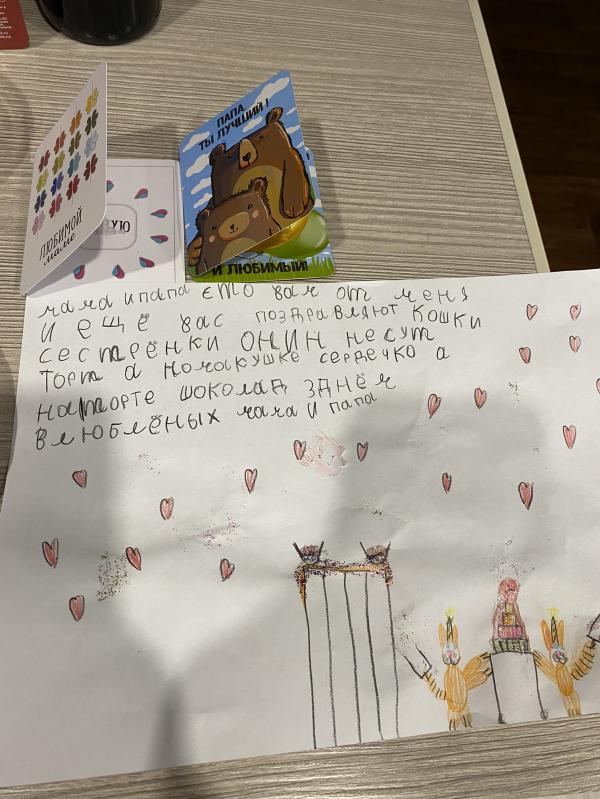 ЛЮБИМОЙ
маме
УЮ
ПАПА,
ТЫ ЛУЧШИЙ!
И ЛЮБИМЫЙ!
мама и папа ето вам от меня
И ещё вас поздравляют кошки
сестрёнки онин несут
торт а номакушке сердечко а
наторте шоколад зднём
влюблёных мама и папа